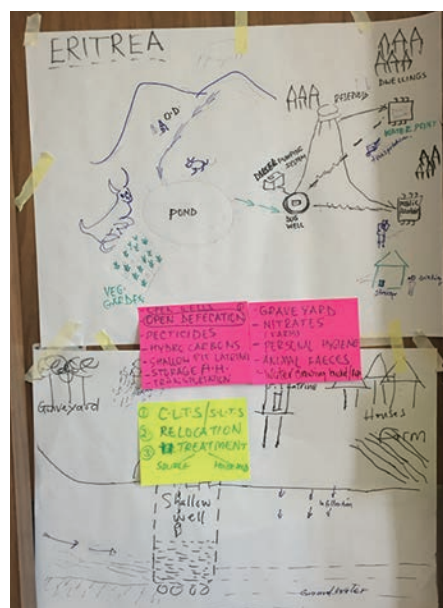 ERITREA
DWELLINGS
O.D
RESERVOIR
WATER POINT
DANGER
PUMPING
SYSTEM
POND
DUG
WELL
VEG.
GARDEN
Storage
OPEN DEFECATION
PESTICIDES
HYDROCARBONS
SHALLOW PIT LATRINE
STORAGE A.H.
TRANSPORTATION
- GRAVEYARD
- NITRATES
(FARM)
- PERSONAL HYGIENE
- ANIMAL FAECES
Graveyard
① C-L-T-S/S-L-T-S
② RELOCATION
③ TREATMENT
SOURCE
Latrine
Houses
Farm
Shallow
well
Infiltration
Groundwater